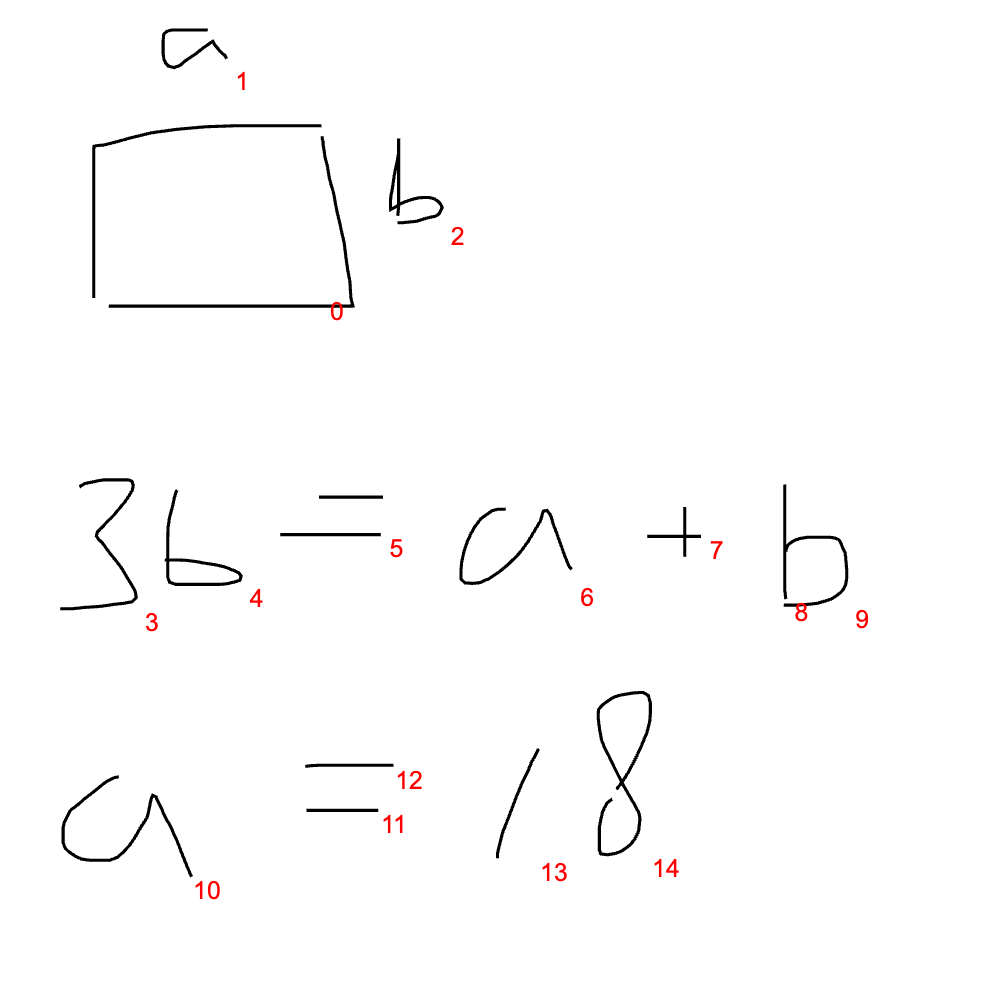 a
1
b
2
0
36 = a + b
3 4 5 6 7 8 9
a = 18
10 12 11 13 14